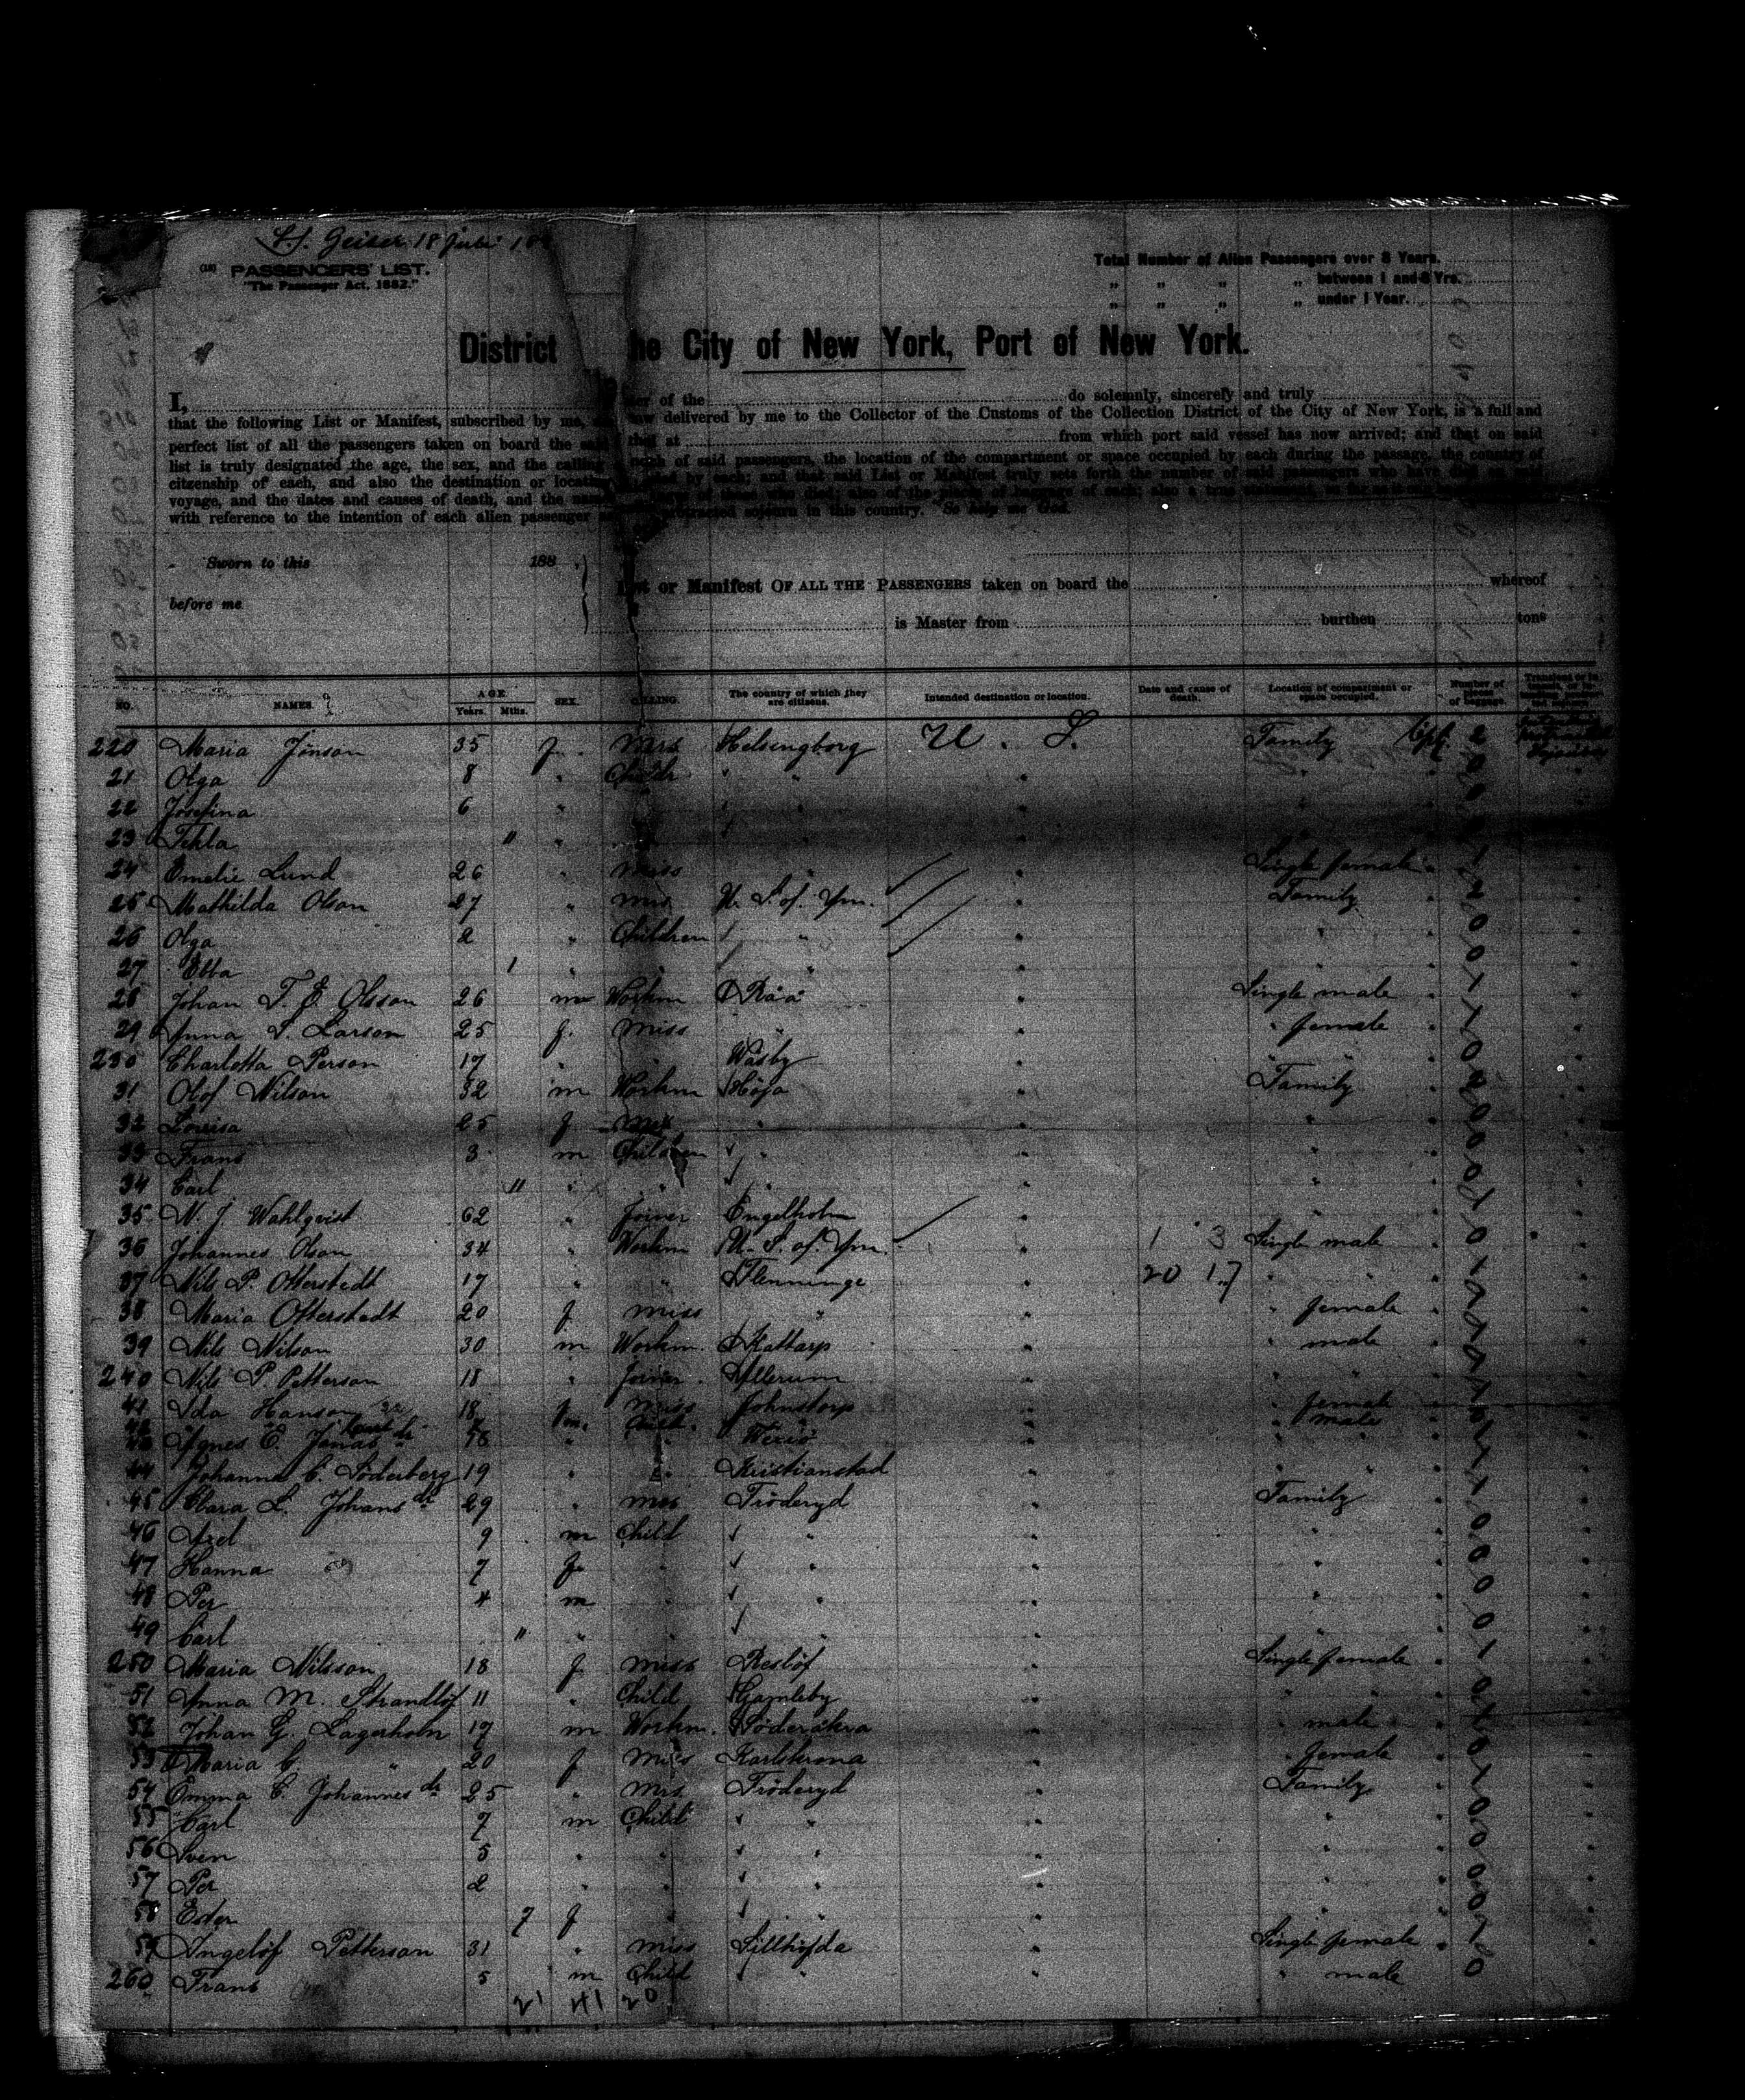 S.S. Geiser 18 Juli 188
PASSENGERS' LIST.
"The Passenger Act, 1882."
Total Number of Alien Passengers over 8 Years.
" " " " between 1 and 8 Yrs.
" " " " under 1 Year.
District he City of New York, Port of New York.
I, er of the do solemnly, sincerely and truly
that the following List or Manifest, subscribed by me, now delivered by me to the Collector of the Customs of the Collection District of the City of New York, is a full and
perfect list of all the passengers taken on board the said that at from which port said vessel has now arrived; and that on said
list is truly designated the age, the sex, and the calling each of said passengers, the location of the compartment or space occupied by each during the passage, the country of
citzenship of each, and also the destination or location by each; and that said List or Manifest truly sets forth the number of said passengers who have died on said
voyage, and the dates and causes of death, and the names
with reference to the intention of each alien passenger protracted sojourn in this country. So help me God.
Sworn to this 188
before me
List or Manifest OF ALL THE PASSENGERS taken on board the whereof
is Master from burthen tons
NO. NAMES. AGE Years. Mths. SEX. CALLING. The country of which they are citizens. Intended destination or location. Date and cause of death. Location of compartment or space occupied. Number of pieces of baggage.
220 Maria Jönson 35 f. Mrs Helsingborg U. S. Family 2
21 Olga 8 " Childr " " " 0
22 Josefina 6 "
23 Tekla 11 "
24 Emelie Lund 26 " Miss " " Single female 1
25 Mathilda Olson 27 " Mrs U. S. of Am. " Family 2
26 Olga 2 " Children " " " 0
27 Ebba 1 " " " " 0
28 Johan T. E. Olsson 26 m Workm Råå " Single male 1
29 Anna S. Larson 25 f. Miss " " " female 1
230 Charlotta Person 17 " " Wäsby " " " 0
31 Olof Nilson 32 m Workm Höja " Family 2
32 Lovisa 25 f Mrs " " " 0
33 Frans 3 m Children " " " 0
34 Carl 11 " " " " 0
35 N. J. Wahlqvist 62 " Joiner Engelholm " " 1
36 Johannes Olson 34 " Workm U. S. of Am. " 1 3 Single male 0
37 Nils P. Otterstedt 17 " " Flenninge " 20 17 " " 1
38 Maria Otterstedt 20 f Miss " " " female 1
39 Nils Nilson 30 m Workm. Kattarp " " male 1
240 Nils P. Petterson 18 " Joiner Allerum " " " 1
41 Ida Hanson 18 f Miss Johnstorp " " female 1
42 m. " male
43 Agnes E. Jonas dr 18 " " Wexiö " " 1
44 Johanna C. Söderberg 19 " " Kristianstad " " " 1
45 Clara L. Johans dr 29 " Mrs Tröderyd " Family 1
46 Axel 9 m Child " " " 0
47 Hanna 7 f " " " " 0
48 Per 4 m " " " " 0
49 Carl 11 " " " " " 0
250 Maria Nilsson 18 f Miss Reslöf " Single female 1
51 Anna M. Strandlöf 11 " Child Gamleby " " " 0
52 Johan G. Lagerholm 17 m Workm. Söderåkra " " male 1
53 Maria C. " 20 f Miss Karlskrona " " female 0
54 Emma C. Johannes dr 25 " Mrs Tröderyd " Family 1
55 Carl 7 m Child " " " 0
56 Sven 5 " " " " " 0
57 Per 2 " " " " " 0
58 Ester 7 f " " " " 0
59 Ingelöf Petterson 31 " Miss Sillhöfda " Single female 1
260 Frans 5 m Child " " " male 0
21 41 20